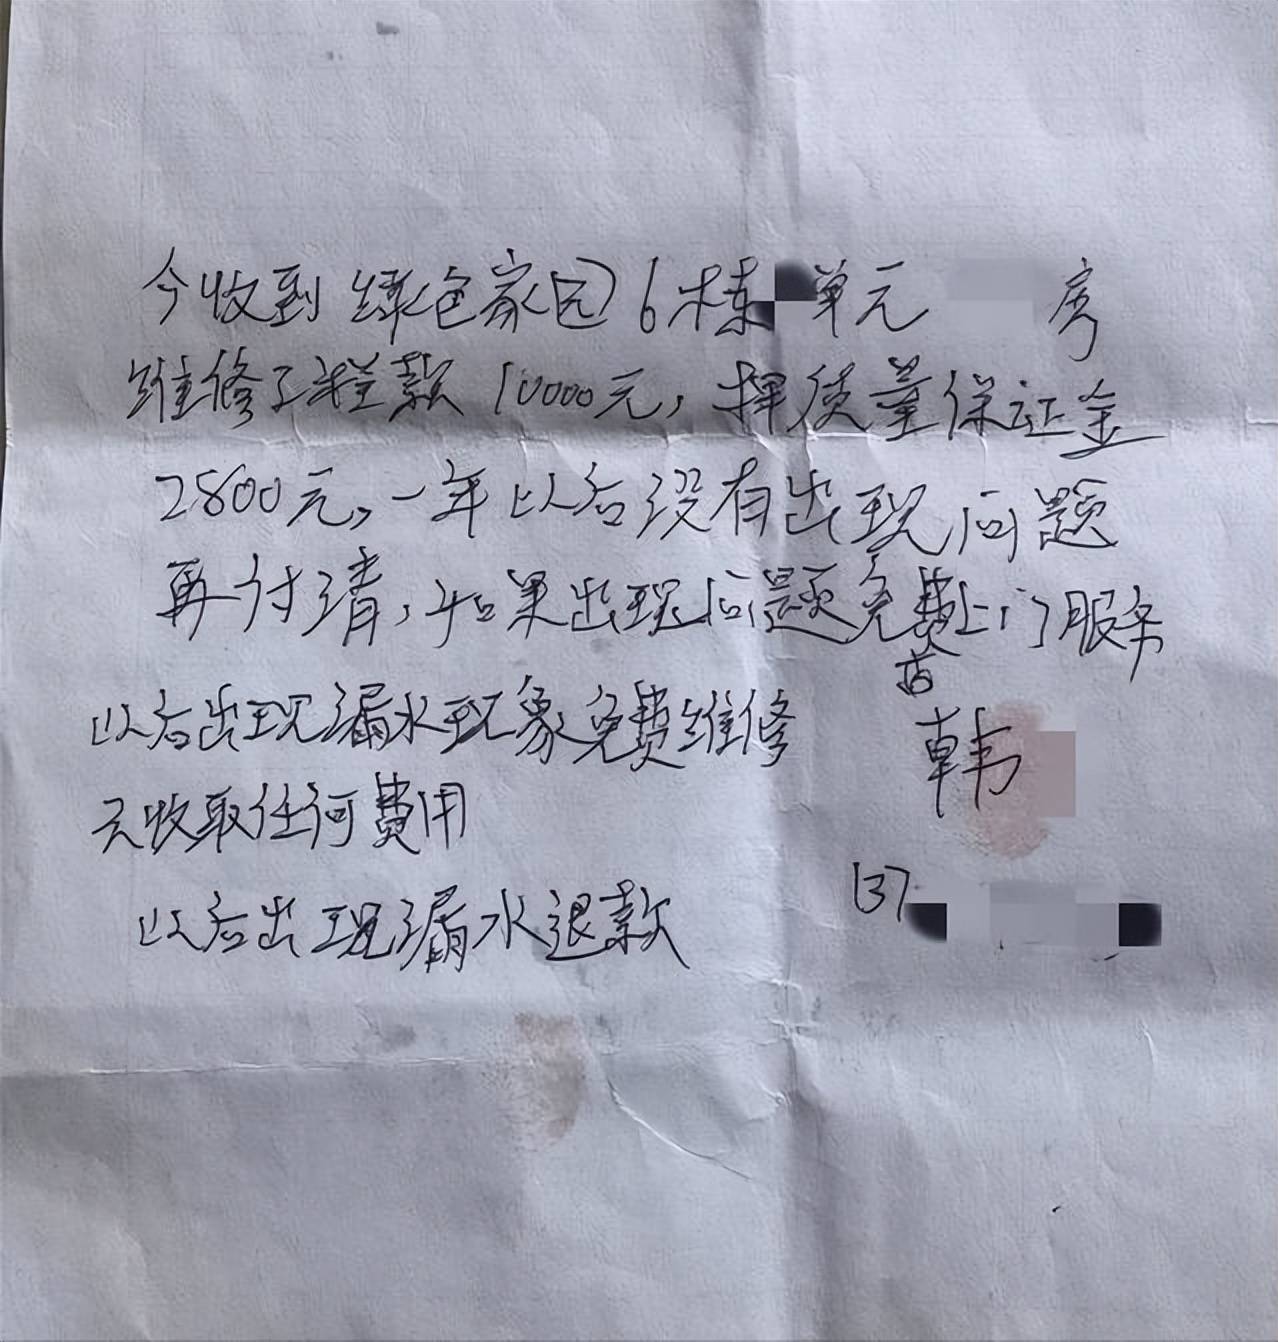 今收到 绿色家园6栋 单元 房
维修工程款10000元，押质量保证金
2800元，一年以后没有出现问题
再付清，如果出现问题免费上门服务
以后出现漏水现象免费维修
不收取任何费用
以后出现漏水退款
韩
137